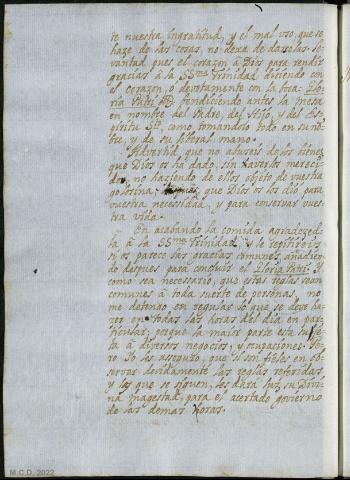 te nuestra ingratitud, y el mal uso, que se
haze de las cosas, no dexa de darselas. Le-
vantad pues el corazon à Dios para rendir
gracias à la SSma Trinidad diciendo con
el corazon, o devotamente con la boca: Glo-
ria Patri &c bendiciendo antes la mesa
en nombre del Padre, del Hijo, y del Es-
piritu Sto, como tomandolo todo en su nõ-
bre, y de su liberal mano.
Advertid que no abuseis de los bienes
que Dios os ha dado, sin haverlos mereci-
do, no haziendo de ellos objeto de vuestra
golosina; que Dios os los dio para
vuestra necessidad, y para conservar vues-
tra vida.
En acabando la comida agradeced-
la à la SSma Trinidad, y le repitireis
si os parece las gracias comunes, añadien-
do despues para concluir el Gloria Patri. Y
como sea necessario, que estas reglas sean
comunes à toda suerte de personas, no
me detengo en regular lo que se deve ha-
zer en todas las horas del dia en par-
ticular, porque la maior parte esta suje-
ta à diversos negocios, y ocupaciones. Pe-
ro Yo les asseguro, que si son fieles en ob-
servar devidamente las reglas referidas
y las que se siguen, les dara luz su Divi-
na magestad, para el acertado govierno
de las demas horas.
M.C.D. 2022